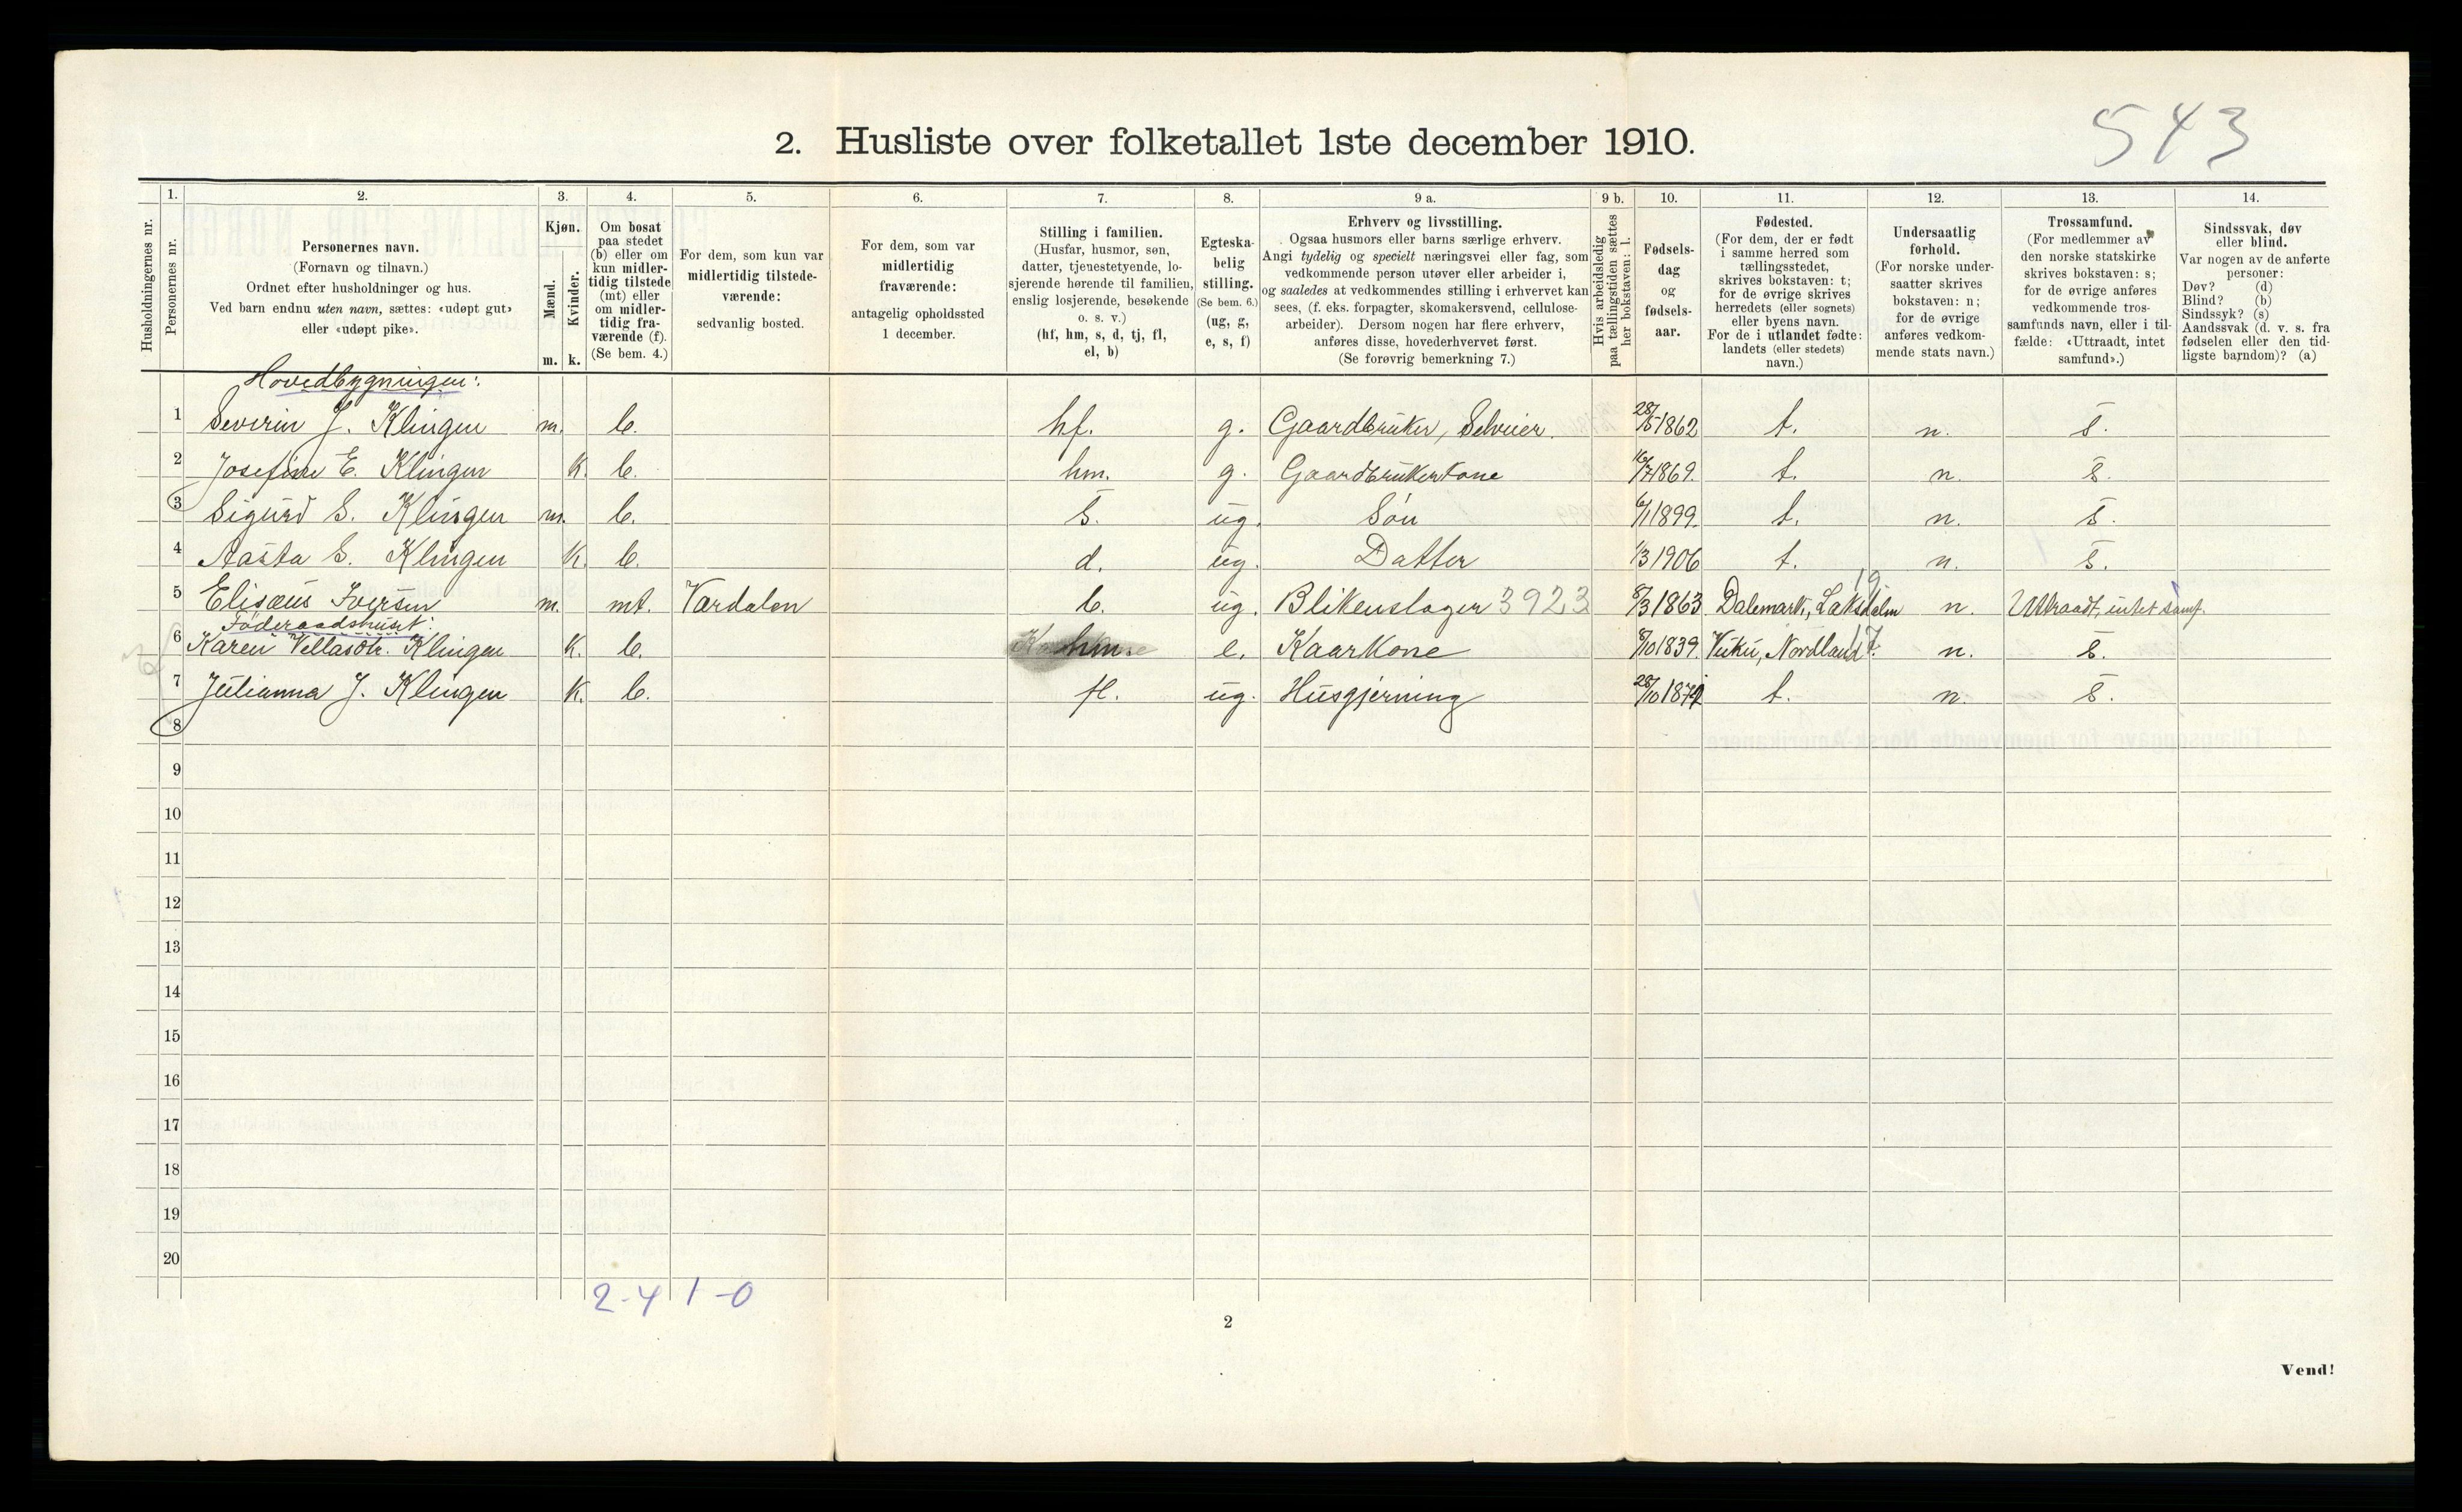 543
2. Husliste over folketallet 1ste december 1910.
Husholdningernes nr.
1.
Personernes nr.
2.
Personernes navn.
(Fornavn og tilnavn.)
Ordnet efter husholdninger og hus.
Ved barn endnu uten navn, sættes: «udøpt gut»
eller «udøpt pike».
3.
Kjøn.
Mænd.
Kvinder.
m. k.
4.
Om bosat
paa stedet
(b) eller om
kun midler-
tidig tilstede
(mt) eller
om midler-
tidig fra-
værende (f).
(Se bem. 4.)
5.
For dem, som kun var
midlertidig tilstede-
værende:
sedvanlig bosted.
6.
For dem, som var
midlertidig
fraværende:
antagelig opholdssted
1 december.
7.
Stilling i familien.
(Husfar, husmor, søn,
datter, tjenestetyende, lo-
sjerende hørende til familien,
enslig losjerende, besøkende
o. s. v.)
(hf, hm, s, d, tj, fl,
el, b)
8.
Egteska-
belig
stilling.
(Se bem. 6.)
(ug, g,
e, s, f)
9 a.
Erhverv og livsstilling.
Ogsaa husmors eller barns særlige erhverv.
Angi tydelig og specielt næringsvei eller fag, som
vedkommende person utøver eller arbeider i,
og saaledes at vedkommendes stilling i erhvervet kan
sees, (f. eks. forpagter, skomakersvend, cellulose-
arbeider). Dersom nogen har flere erhverv,
anføres disse, hovederhvervet først.
(Se forøvrig bemerkning 7.)
9 b.
Hvis arbeidsledig
paa tællingstiden sættes
her bokstaven: l.
10.
Fødsels-
dag
og
fødsels-
aar.
11.
Fødested.
(For dem, der er født
i samme herred som
tællingsstedet,
skrives bokstaven: t;
for de øvrige skrives
herredets (eller sognets)
eller byens navn.
For de i utlandet fødte:
landets (eller stedets)
navn.)
12.
Undersaatlig
forhold.
(For norske under-
saatter skrives
bokstaven: n;
for de øvrige
anføres vedkom-
mende stats navn.)
13.
Trossamfund.
(For medlemmer av
den norske statskirke
skrives bokstaven: s;
for de øvrige anføres
vedkommende tros-
samfunds navn, eller i til-
fælde: «Uttraadt, intet
samfund».)
14.
Sindssvak, døv
eller blind.
Var nogen av de anførte
personer:
Døv? (d)
Blind? (b)
Sindssyk? (s)
Aandssvak (d. v. s. fra
fødselen eller den tid-
ligste barndom)? (a)
Hovedbygningen:
1 Severin J. Klingen m. b. hf. g. Gaardbruker, Selveier. 28/5 1862 t. n. s.
2 Josefine E. Klingen k. b. hm. g. Gaardbrukerkone 16/7 1869. t. n. s.
3 Sigurd S. Klingen m. b. s. ug. Søn 6/1 1899. t. n. s.
4 Aasta S. Klingen k. b. d. ug. Datter 1/3 1906 t. n. s.
5 Elisæus Iversen m. mt. Værdalen b. ug. Blikenslager 3923 8/3 1863 Dalemark, n. Uttraadt, intet samf.
Føderaadshuset:
6 Karen Klingen k. b. hm. e. Kaarkone 8/10 1839. Vuku, Nordland n. s.
7 Julianna J. Klingen k. b. fl. ug. Husgjerning 28/10 t. n. s.
8
9
10
11
12
13
14
15
16
17
18
19
20
2-4 1-0
2
Vend!